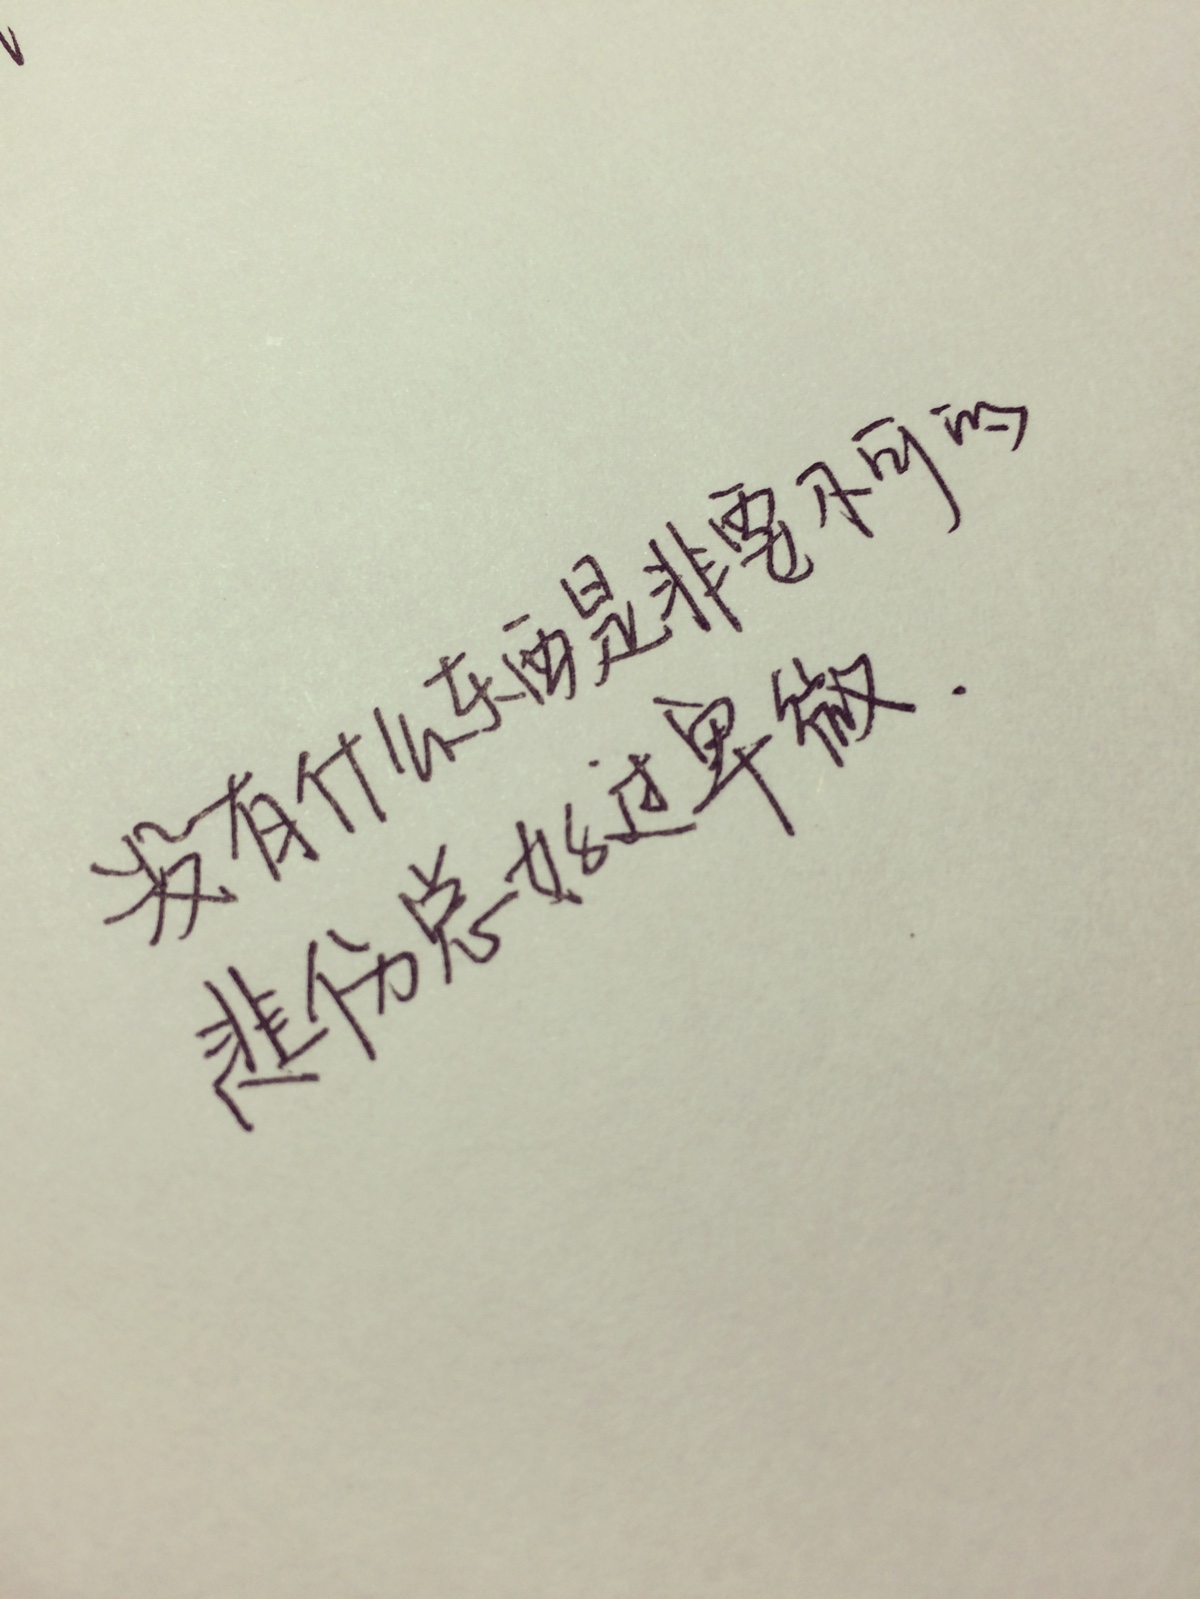 没有什么东西是非要不可的
悲伤总好过卑微.